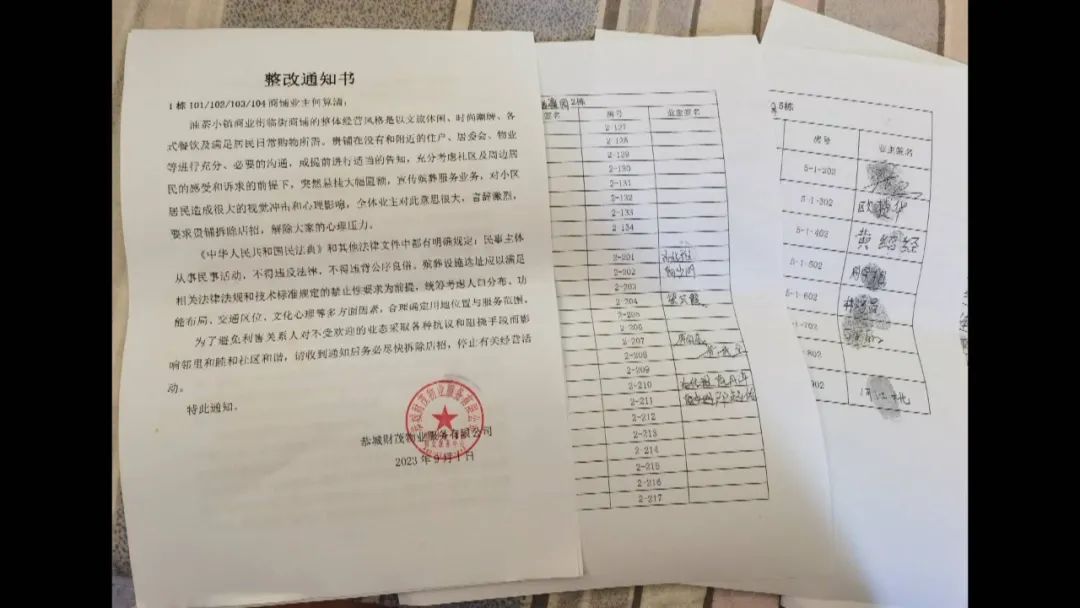 整改通知书
1栋101/102/103/104商铺业主何算清:
油茶小镇商业街临街商铺的整体经营风格是以文旅休闲、时尚潮牌、各
式餐饮及满足居民日常购物所需。贵铺在没有和附近的住户、居委会、物业
等进行充分、必要的沟通,或提前进行适当的告知,充分考虑社区及周边居
民的感受和诉求的前提下,突然悬挂大幅匾额,宣传殡葬服务业务,对小区
居民造成很大的视觉冲击和心理影响,全体业主对此意思很大,言辞激烈,
要求贵铺拆除店招,解除大家的心理压力。
《中华人民共和国民法典》和其他法律文件中都有明确规定:民事主体
从事民事活动,不得违反法律,不得违背公序良俗。殡葬设施选址应以满足
相关法律法规和技术标准规定的禁止性要求为前提,统筹考虑人口分布、功
能布局、交通区位、文化心理等多方面因素,合理确定用地位置与服务范围。
为了避免利害关系人对不受欢迎的业态采取各种抗议和阻挠手段而影
响邻里和睦和社区和谐,请收到通知后务必尽快拆除店招,停止有关经营活
动。
特此通知。
恭城财茂物业服务有限公司
2023年9月1日
2栋
签名 房号 业主签名
2-127
2-128
2-129
2-130
2-131
2-132
2-133
2-134
2-201
2-202
2-203
2-204
2-205
2-206
2-207
2-208
2-209
2-210
2-211
2-212
2-213
2-214
2-215
2-216
2-217
5栋
房号 业主签名
5-1-202
5-1-302
5-1-402 黄绍经
5-1-502
5-1-602
802
902